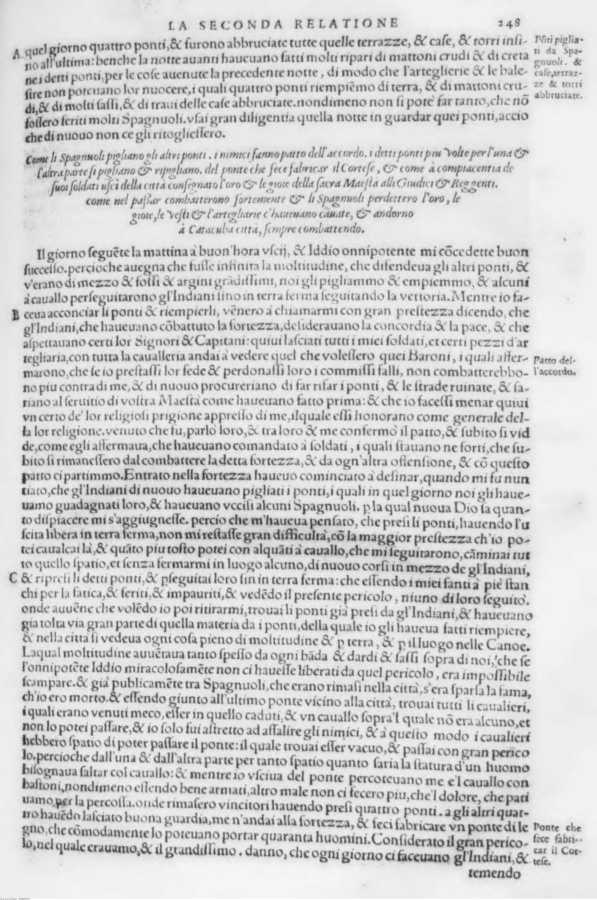 LA SECONDA RELATIONE 248
A quel giorno quattro ponti, & furono abbruciate tutte quelle terrazze, & case, & torri insi-
no all'ultima: benche la notte auanti haueuano fatti molti ripari di mattoni crudi & di creta
ne i detti ponti, per le cose auenute la precedente notte, di modo che l'arteglierie & le bale-
stre non poteuano lor nuocere, i quali quattro ponti riempiẽmo di terra, & di mattoni cru-
di, & di molti sassi, & di traui delle case abbruciate. nondimeno non si potè far tanto, che nõ
fossero feriti molti Spagnuoli. vsai gran diligentia quella notte in guardar quei ponti, accio
che di nuouo non ce gli ritogliessero.
Põti piglia-
ti da Spa-
gnuoli. &
case, terraz-
ze & torri
abbruciate.
Come li Spagnuoli pigliano gli altri ponti. i nimici fanno patto dell'accordo. i detti ponti piu volte per l'una &
l'altra parte si pigliano & ripigliano. del ponte che fece fabricar il Cortese, & come à compiacentia de
suoi soldati uscì della città consegnato l'oro & le gioie della sacra Maestà alli Giudici & Reggenti.
come nel passar combatterono fortemente & li Spagnuoli perdettero l'oro, le
gioie, le vesti & l'artegliarie c'haueuano cauate, & andorno
à Catacuba città, sempre combattendo.
Il giorno seguẽte la mattina à buon'hora vscij, & Iddio onnipotente mi cõcedette buon
successo. percioche auegna che fusse infinita la moltitudine, che difendeua gli altri ponti, &
v'erano di mezzo & fossi & argini grãdissimi, noi gli pigliammo & empiemmo, & alcuni
à cauallo perseguitarono gl'Indiani sino in terra ferma seguitando la vettoria. Mentre io fa-
B ceua acconciar li ponti & riempierli, vẽnero à chiamarmi con gran prestezza dicendo, che
gl'Indiani, che haueuano cõbattuto la fortezza, desiderauano la concordia & la pace, & che
aspettauano certi lor Signori & Capitani: quiui lasciati tutti i miei soldati, et certi pezzi d'ar
tegliaria, con tutta la caualleria andai à vedere quel che volessero quei Baroni, i quali affer-
marono, che se io prestassi lor fede & perdonassi loro i commissi falli, non combatterebbo-
no piu contra di me, & di nuouo procureriano di far rifar i ponti, & le strade ruinate, & sa-
riano al seruitio di vostra Maestà come haueuano fatto prima: & che io facessi menar quiui
vn certo de' lor religiosi prigione appresso di me, il quale essi honorano come generale del-
la lor religione. venuto che fu, parlò loro, & tra loro & me confermò il patto, & subito si vid
de, come egli affermaua, che haueuano comandato à soldati, i quali stauano ne forti, che su-
bito si rimanessero dal combattere la detta fortezza, & da ogn'altra offensione, & cõ questo
patto ci partimmo. Entrato nella fortezza haueuo cominciato à desinar, quando mi fu nun
tiato, che gl'Indiani di nuouo haueuano pigliati i ponti, i quali in quel giorno noi gli haue-
uamo guadagnati loro, & haueuano vccisi alcuni Spagnuoli. p la qual nuoua Dio sa quan-
to dispiacere mi s'aggiugnesse. percio che m'haueua pensato, che presi li ponti, hauendo l'u
scita libera in terra ferma, non mi restasse gran difficultà, cõ la maggior prestezza ch'io po-
tei caualcai là, & quãto piu tosto potei con alquãti à cauallo, che mi seguitarono, cãminai tut
to quello spatio, et senza fermarmi in luogo alcuno, di nuouo corsi in mezzo de gl'Indiani,
C & ripresi li detti ponti, & pseguitai loro sin in terra ferma: che essendo i miei fanti à piè stan
chi per la fatica, & feriti, & impauriti, & vedẽdo il presente pericolo, niuno di loro seguitò.
onde auuẽne che volẽdo io poi ritirarmi, trouai li ponti già presi da gl'Indiani, & haueuano
gia tolta via gran parte di quella materia da i ponti, della quale io gli haueua fatti riempiere,
& nella città si vedeua ogni cosa pieno di moltitudine & p terra, & p il luogo nelle Canoe.
La qual moltitudine auuẽtaua tanto spesso da ogni bãda & dardi & sassi sopra di noi, che se
l'onnipotẽte Iddio miracolosamẽte non ci hauesse liberati da quel pericolo, era impossibile
scampare. & già publicamẽte tra Spagnuoli, che erano rimasi nella città, s'era sparsa la fama,
ch'io ero morto. & essendo giunto all'ultimo ponte vicino alla città, trouai tutti li caualieri,
i quali erano venuti meco, esser in quello caduti, & vn cauallo sopra'l quale nõ era alcuno, et
non lo potei passare, & io solo fui astretto ad assalire gli nimici, & à questo modo i caualieri
hebbero spatio di poter passare il ponte: il quale trouai esser vacuo, & passai con gran perico
lo, percioche dall'una & dall'altra parte per tanto spatio quanto saria la statura d'un huomo
bisognaua saltar col cauallo: & mentre io vsciua del ponte percoteuano me e'l cauallo con
bastoni, nondimeno essendo bene armati, altro male non ci fecero piu, che'l dolore, che pati
uamo, per la percossa. onde rimasero vincitori hauendo presi quattro ponti. a gli altri quat-
tro hauẽdo lasciato buona guardia, me n'andai alla fortezza, & feci fabricare vn ponte di le
gno, che cõmodamente lo poteuano portar quaranta huomini. Considerato il gran perico-
lo, nel quale erauamo, & il grandissimo. danno, che ogni giorno ci faceuano gl'Indiani, &
temendo
Patto del-
l'accordo.
Ponte che
fece fabri-
car il Cor-
tese.